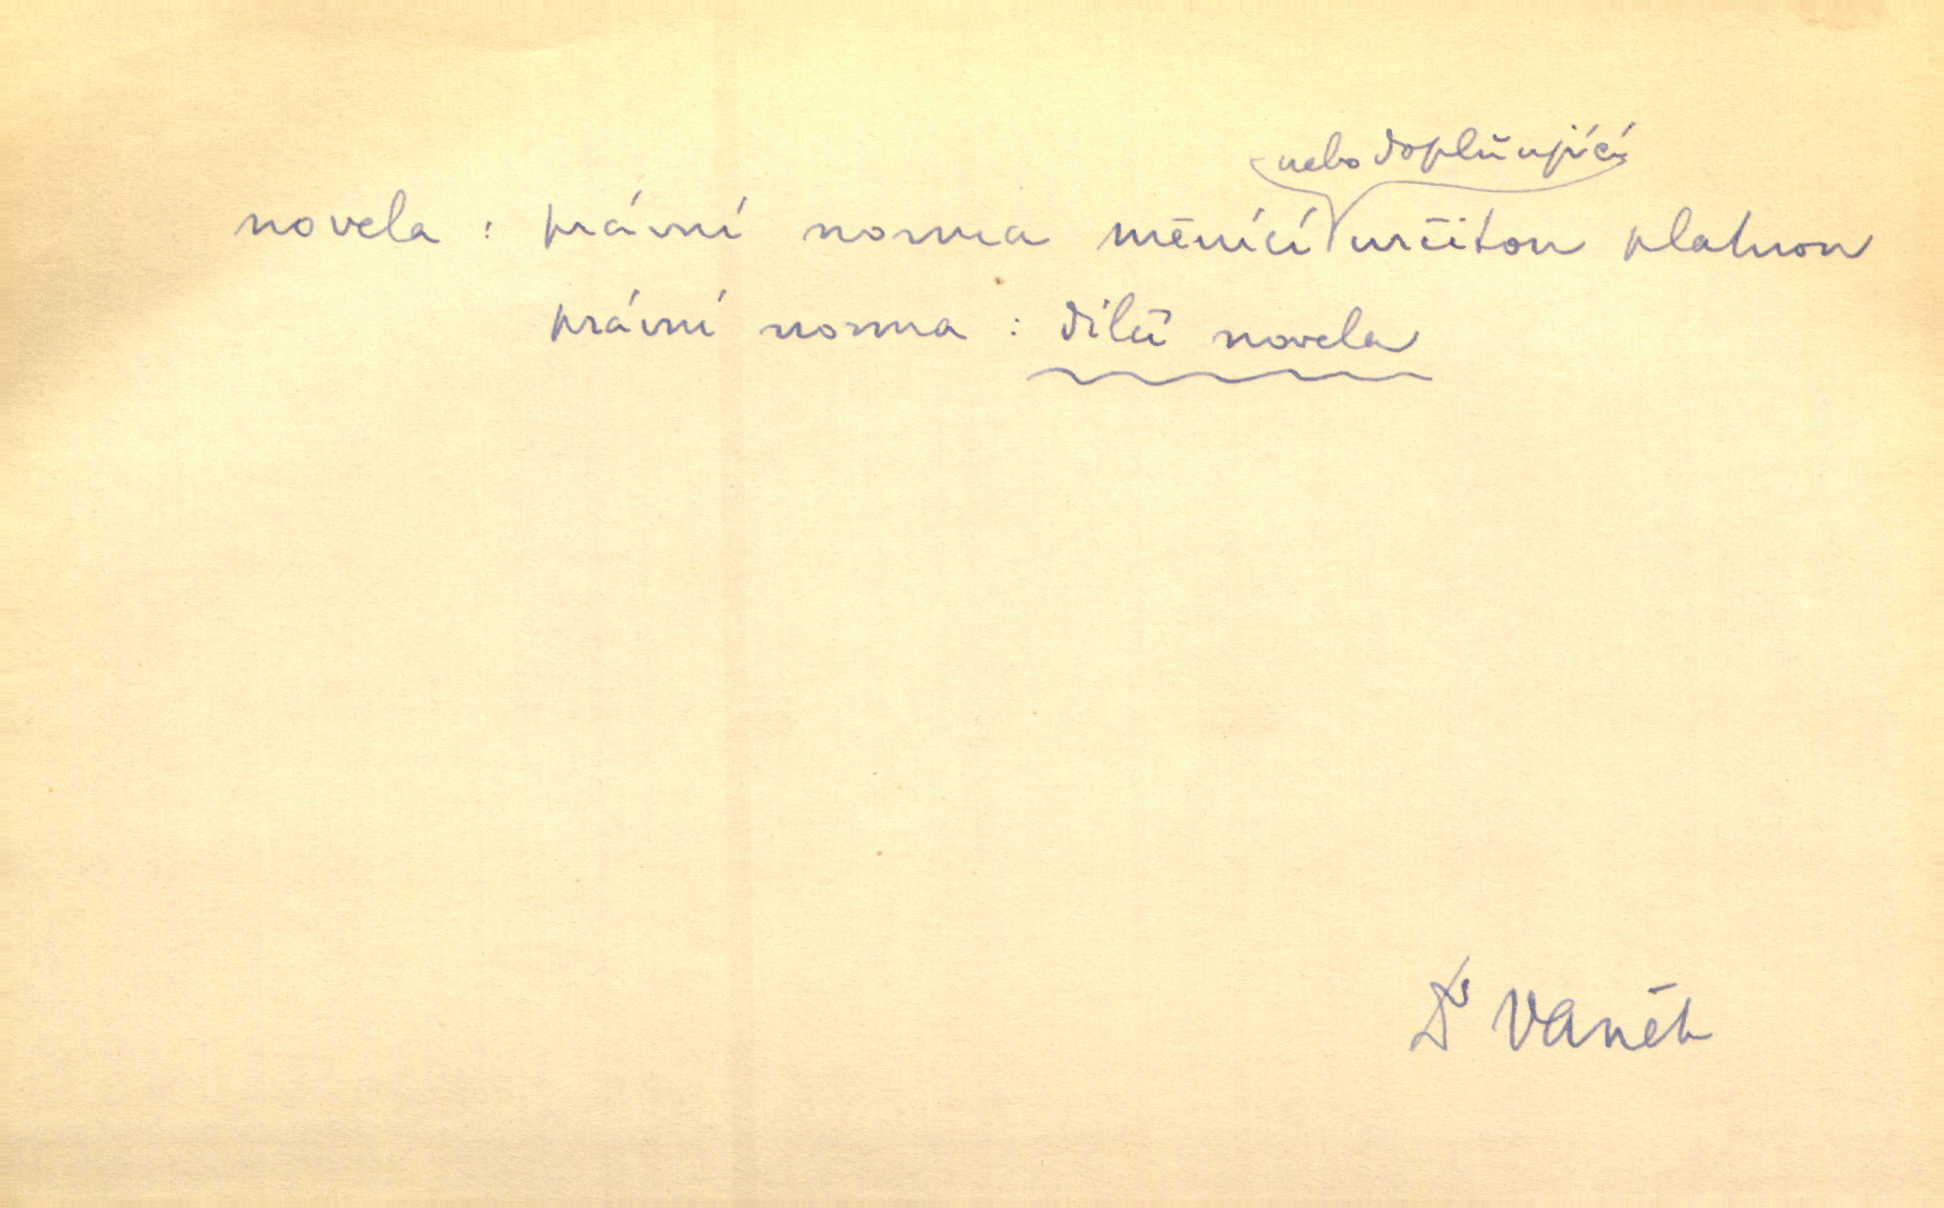 nebo doplňující
novela : právní norma měnící určitou platnou
právní norma : dílčí novela
Dr Vaněk